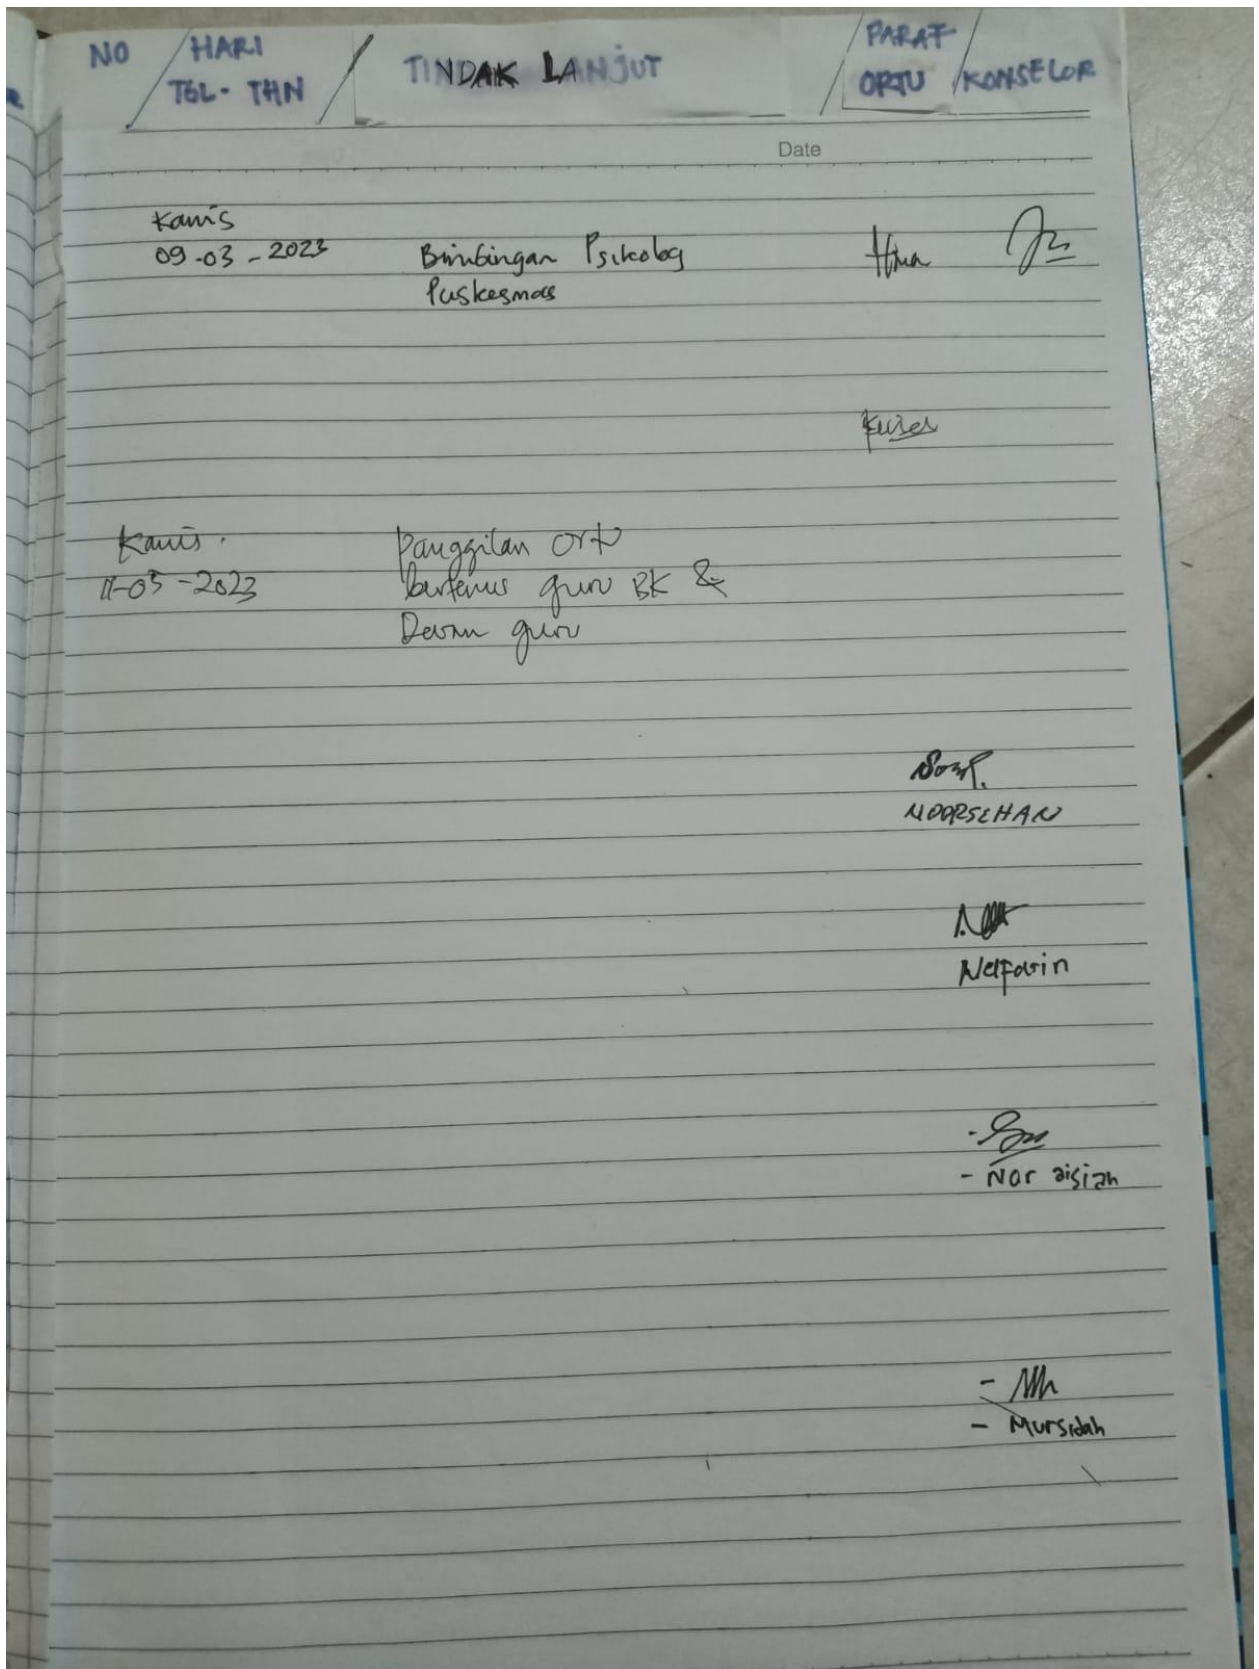 NO / HARI TGL - THN / TINDAK LANJUT / PARAF ORTU / KONSELOR
Date
Kamis
09-03-2023 Bimbingan Psikolog
Puskesmas
Kamis.
11-05-2023
Panggilan ortu
bertemu guru BK &
Dewan guru
NOORSEHAN
Nor aisiah
Mursidah